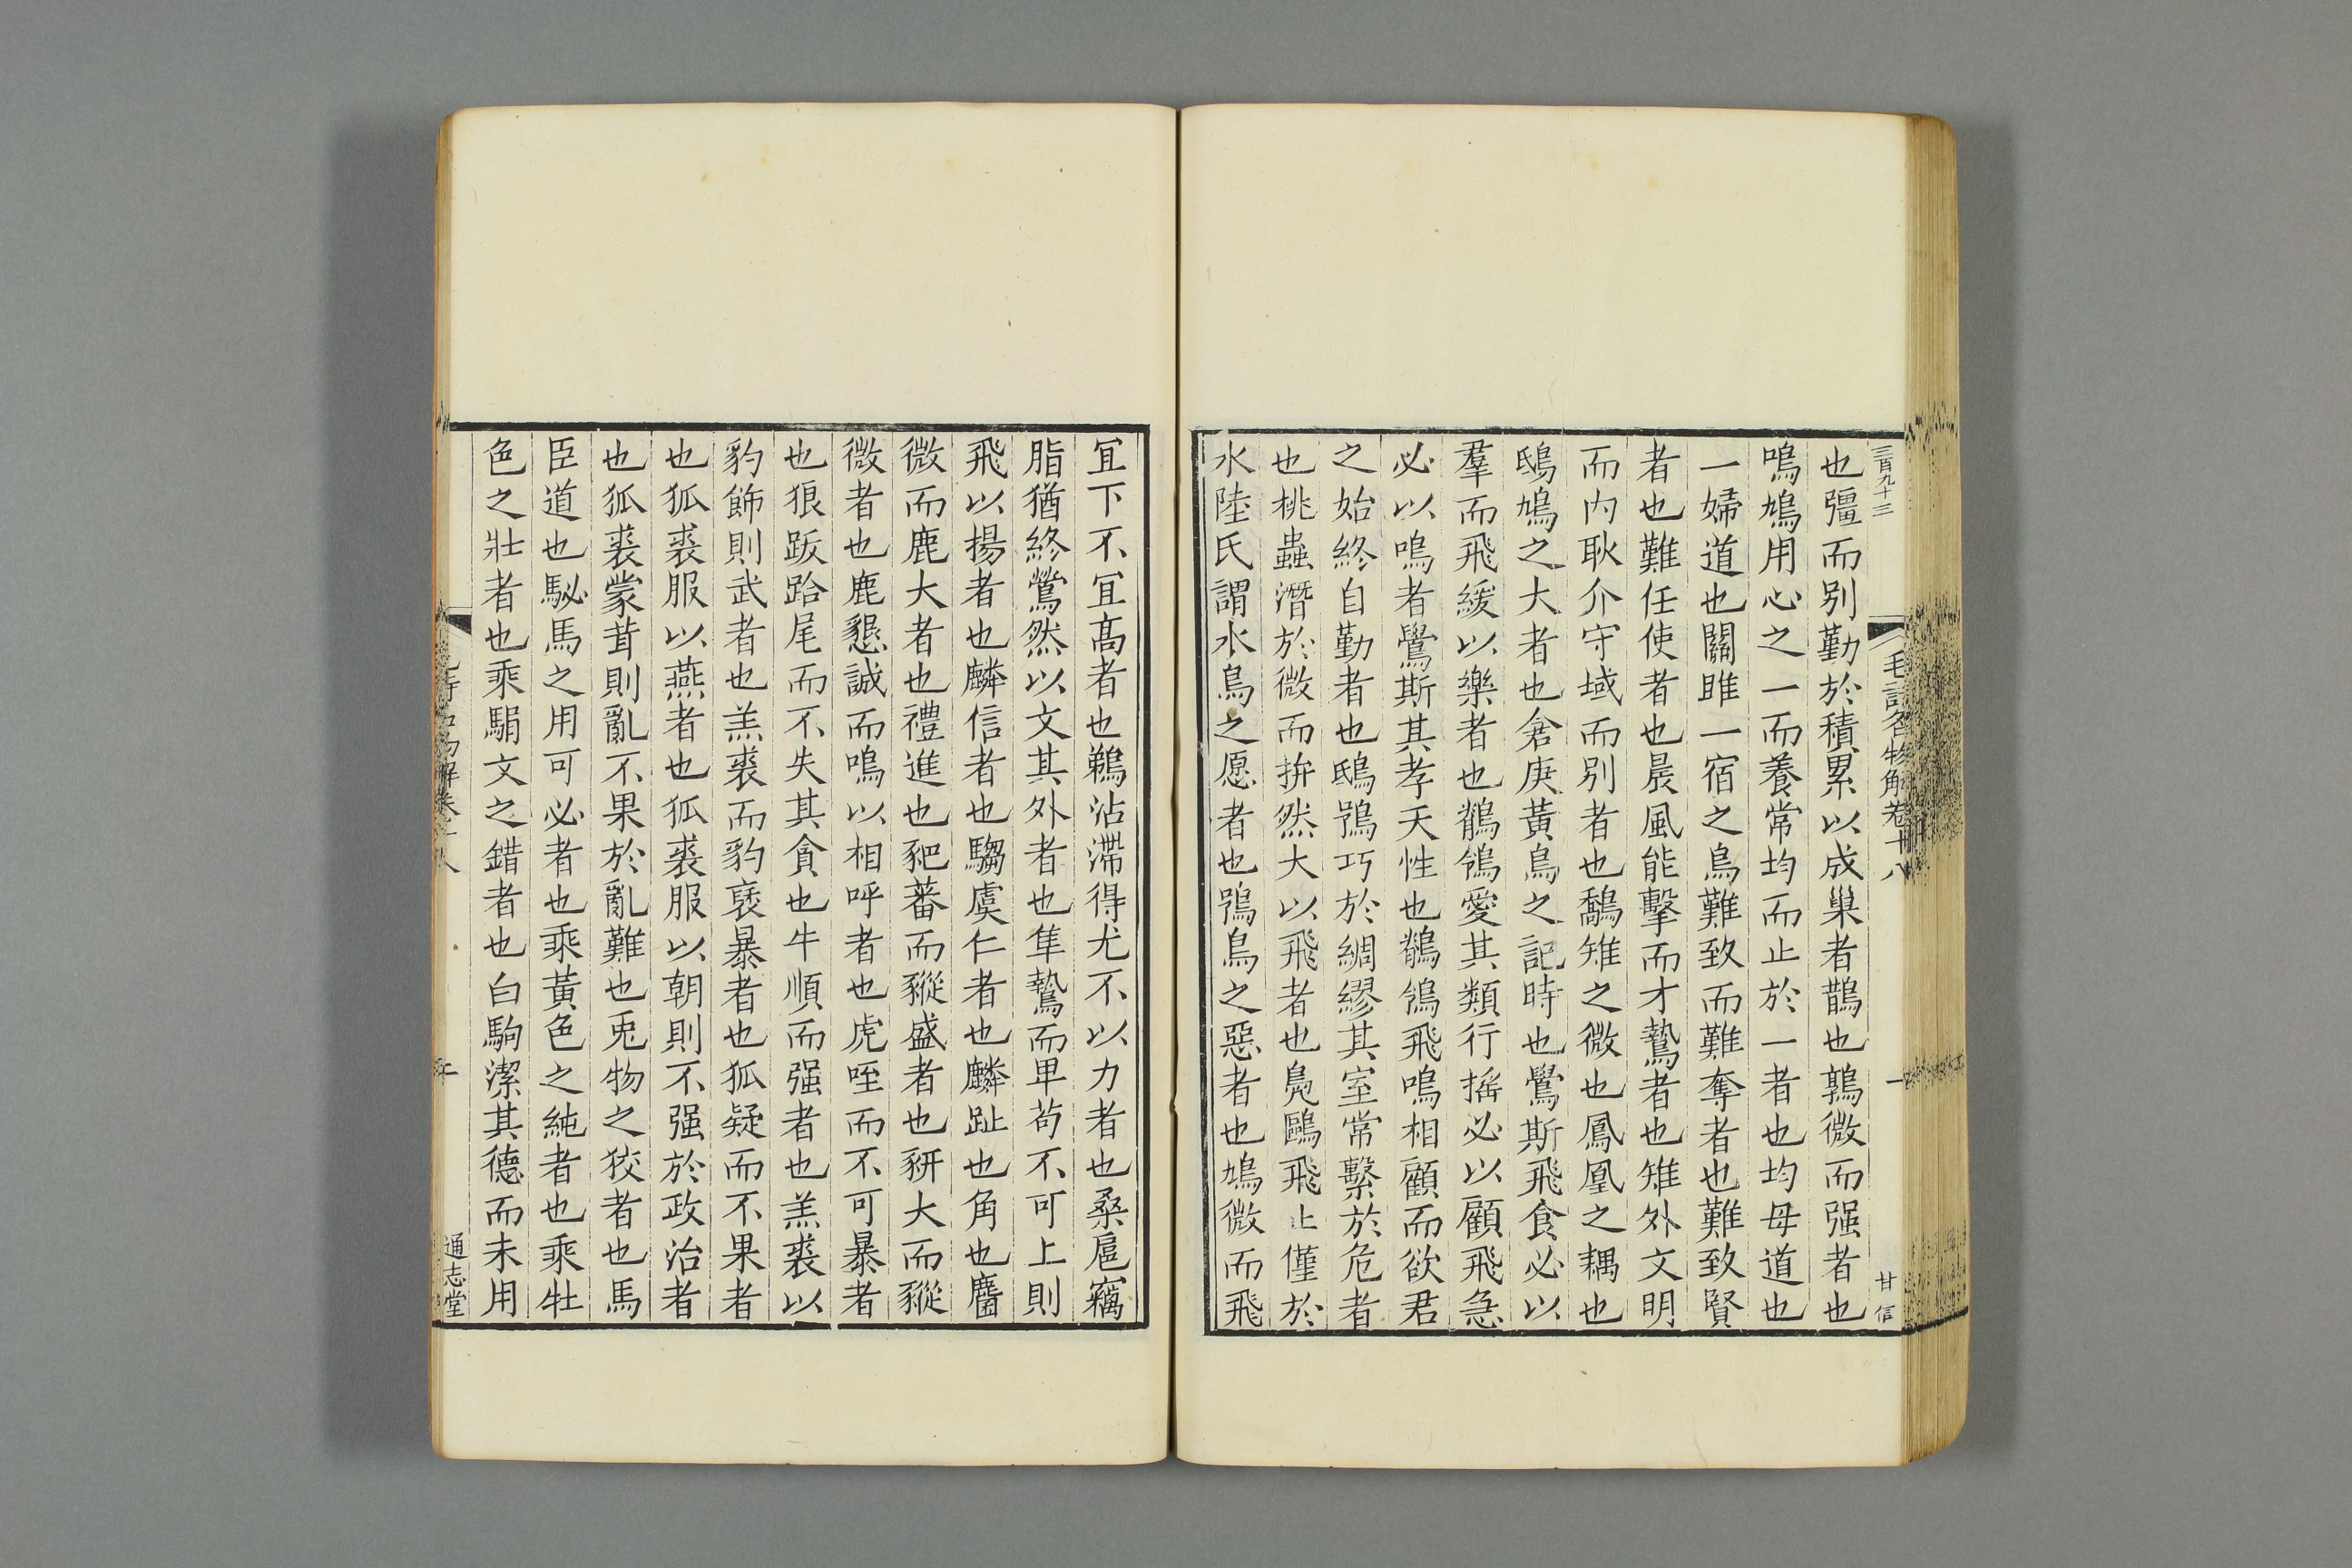 三百九十三
毛詩名物解卷十八
一
甘信
也彊而別勤於積累以成巢者鵲也鶉微而强者也
鳴鳩用心之一而養常均而止於一者也均母道也
一婦道也關雎一宿之鳥難致而難奪者也難致賢
者也難任使者也晨風能擊而才鷙者也雉外文明
而内耿介守域而別者也鷮雉之微也鳳凰之耦也
鴟鳩之大者也倉庚黃鳥之記時也鸒斯飛食必以
羣而飛緩以樂者也鶺鴒愛其類行搖必以顧飛急
必以鳴者鸒斯其孝天性也鶺鴒飛鳴相顧而欲君
之始終自勤者也鴟鴞巧於綢繆其室常繫於危者
也桃蟲潛於微而拚然大以飛者也鳧鷖飛止僅於
水陸氏謂水鳥之愿者也鴞鳥之惡者也鳩微而飛
宜下不宜高者也鵜沾滯得尤不以力者也桑扈竊
脂猶終鶯然以文其外者也隼鷙而卑苟不可上則
飛以揚者也麟信者也騶虞仁者也麟趾也角也麕
微而鹿大者也禮進也豝蕃而豵盛者也豜大而豵
微者也鹿懇誠而鳴以相呼者也虎咥而不可暴者
也狼跋跲尾而不失其貪也牛順而强者也羔裘以
豹飾則武者也羔裘而豹褎暴者也狐疑而不果者
也狐裘服以燕者也狐裘服以朝則不强於政治者
也狐裘蒙茸則亂不果於亂難也兎物之狡者也馬
臣道也駜馬之用可必者也乘黃色之純者也乘牡
色之壯者也乘駽文之錯者也白駒潔其德而未用
通志堂